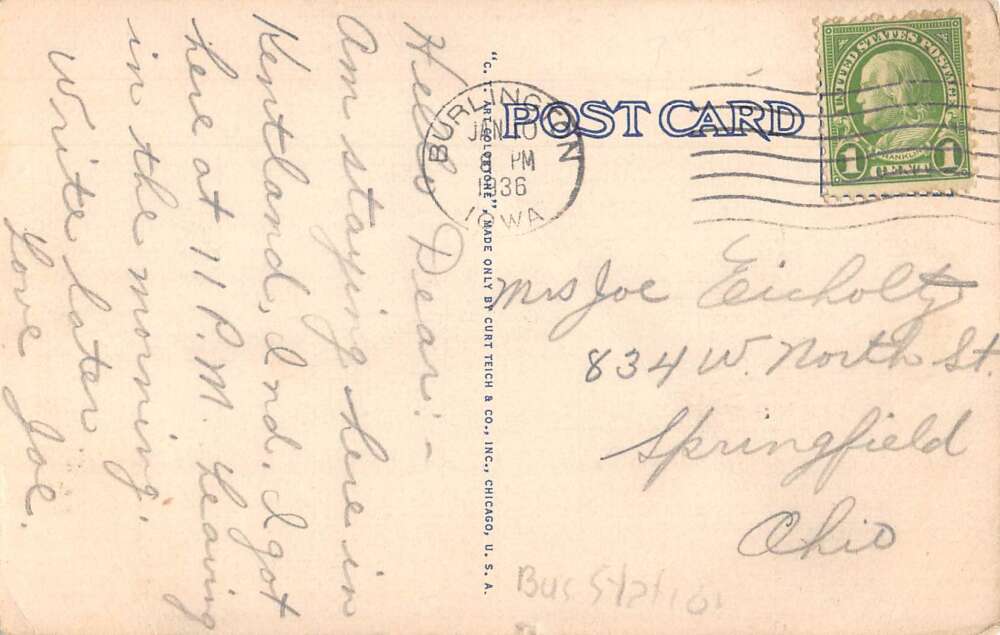 Hello Dear:-
Am staying here in
Kentland, Ind. I got
here at 11 P.M. Leaving
in the morning.
Write later
Love Joe.
"C. T. ART-COLORTONE", MADE ONLY BY CURT TEICH & CO., INC., CHICAGO, U. S. A.
POST CARD
BURLINGTON
JAN 10
PM
1936
IOWA
UNITED STATES POSTAGE
FRANKLIN
1 1
Mrs Joe Eicholtz
834 W. North St.
Springfield
Ohio
Bus Station